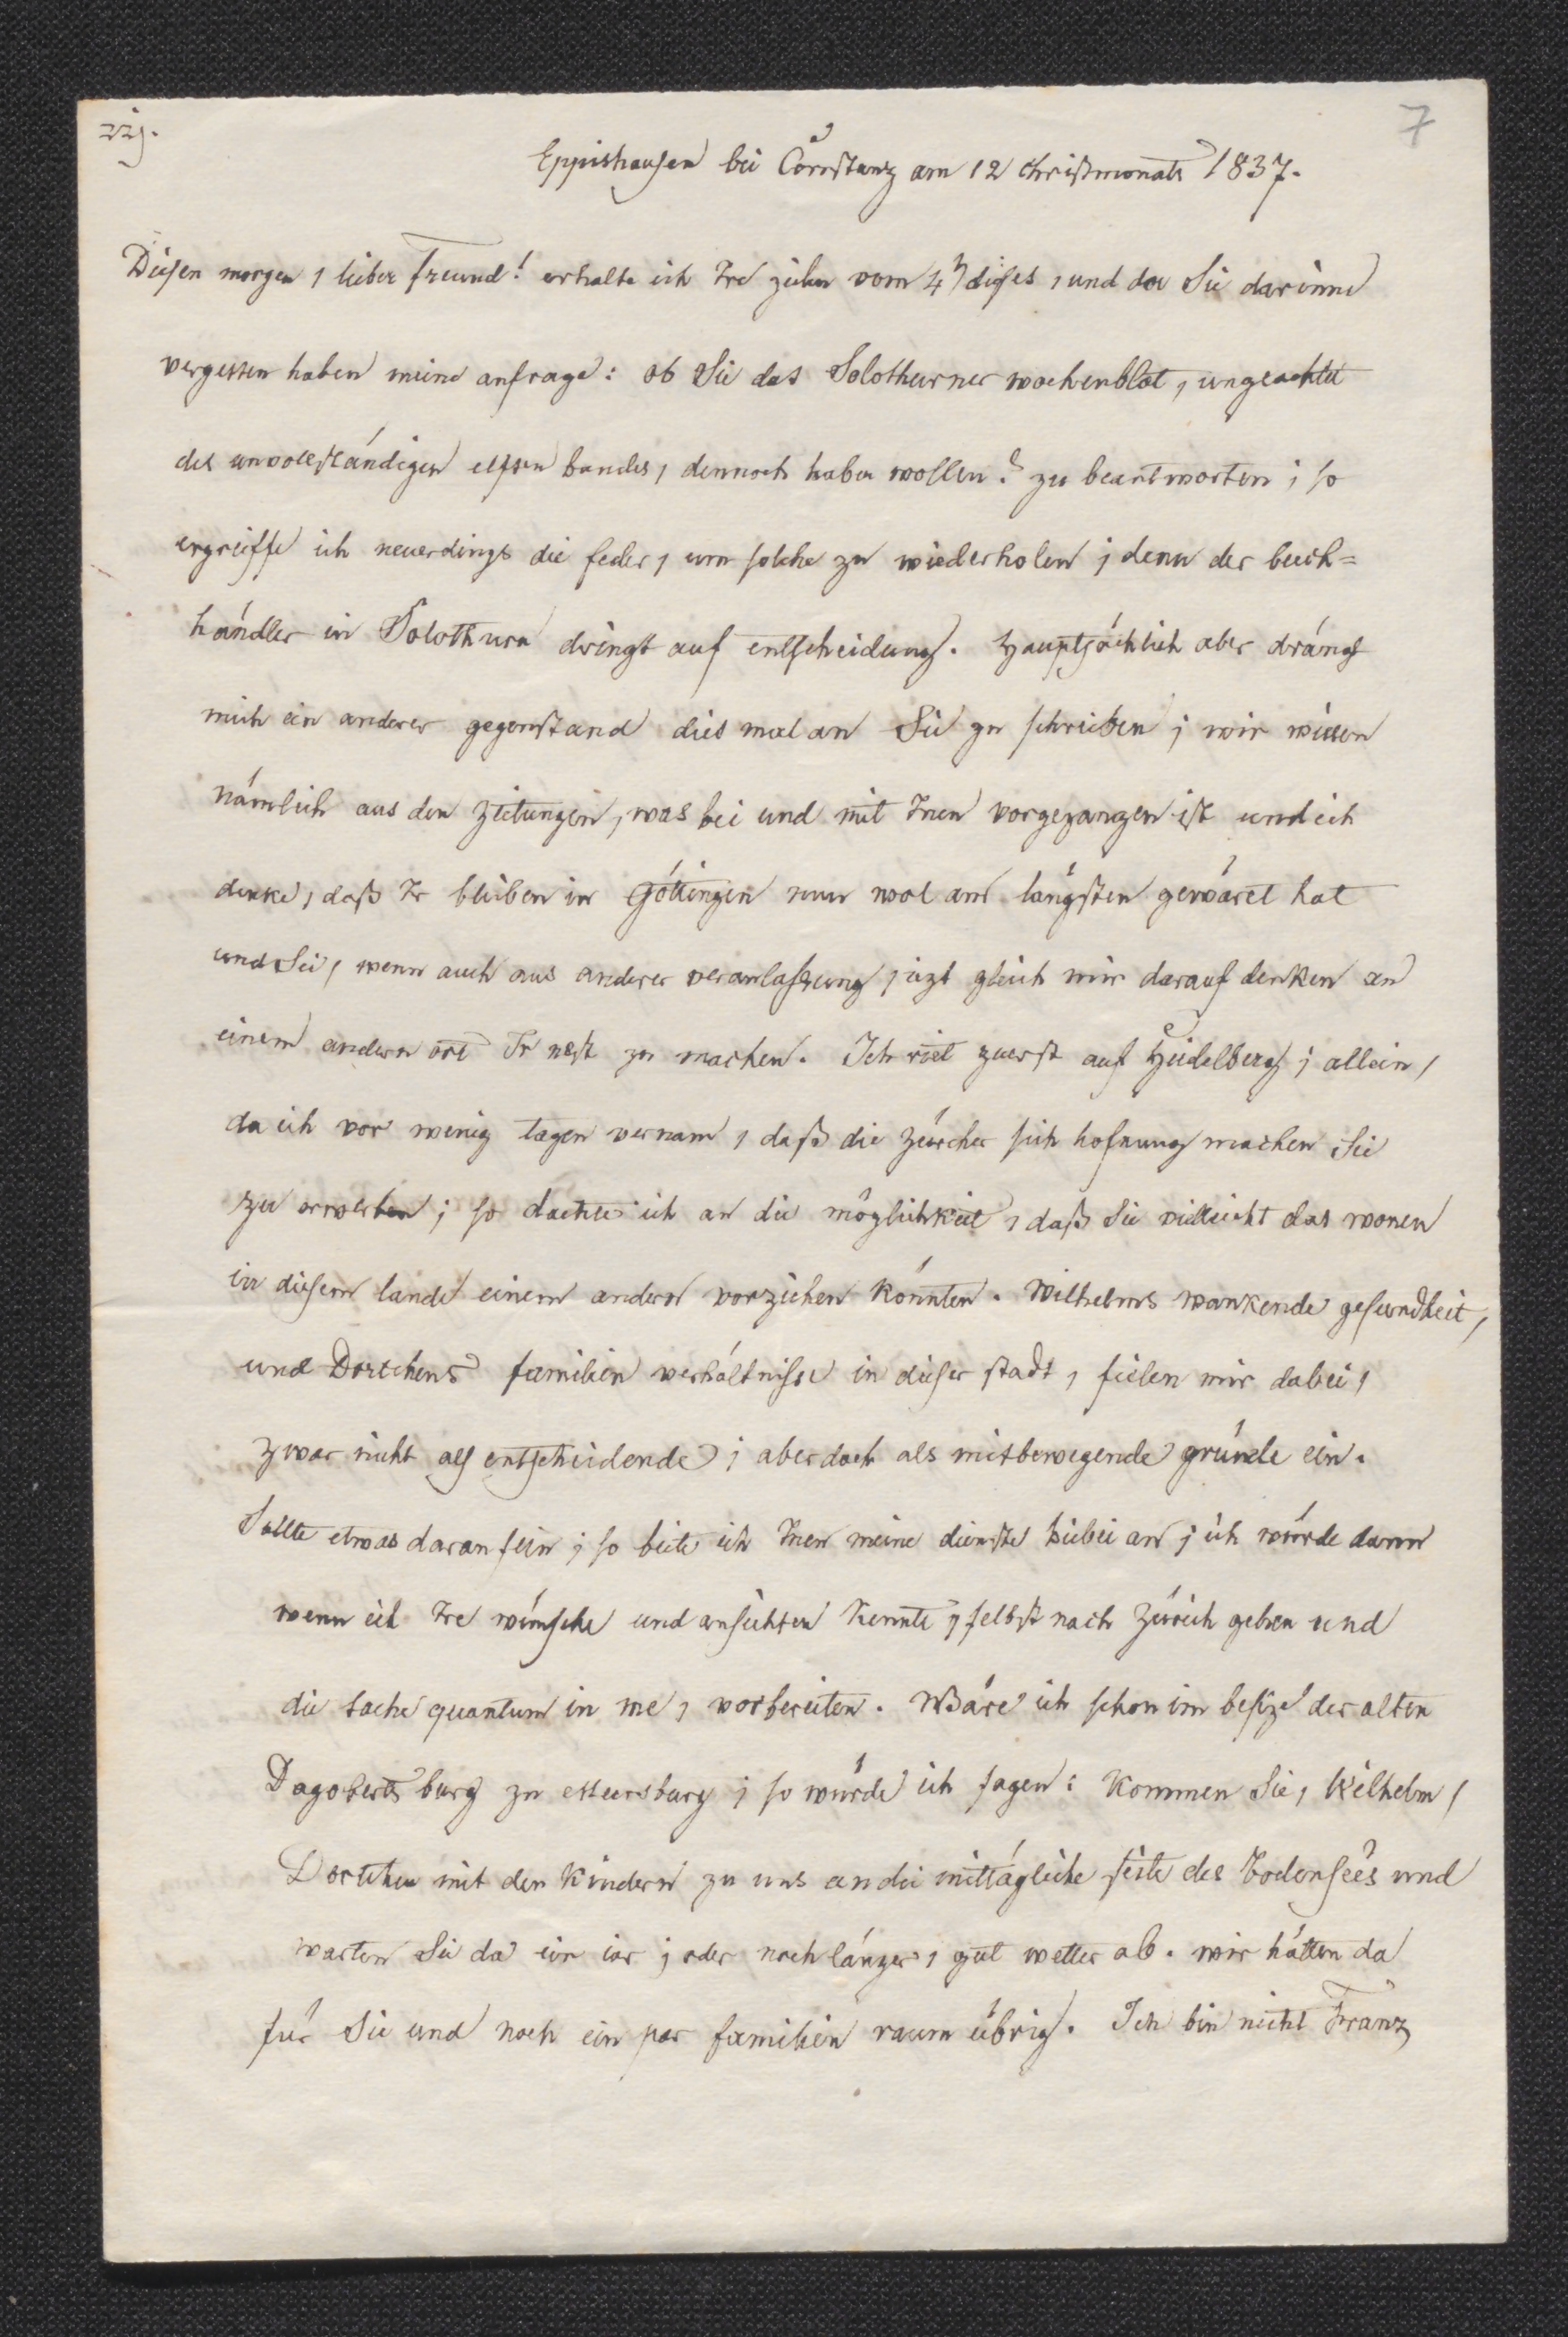 7
Eppishausen bei Constanz am 12 christmonats 1837.
Diesen morgen, lieber Freund! erhalte ich Ire zeilen vom 4ⁿ dieses, und da Sie darinne
vergessen haben meine anfrage: ob Sie das Solothurner wochenblat, ungeachtet
des unvollständigen elften bandes, dennoch haben wollen? zu beantworten; so
ergreiffe ich neuerdings die feder, um solche zu wiederholen; denn der buch=
händler in Solothurn dringt auf entscheidung. Hauptsächlich aber drängt
mich ein anderer gegenstand dies mal an Sie zu schreiben; wir wissen
nämlich aus den zeitungen, was bei und mit Inen vorgegangen ist und ich
denke, daß Ir bleiben in Göttingen nun wol am längsten gewäret hat
und Sie, wenn auch aus anderer veranlaßung, iezt gleich mir darauf denken an
einem andern ort Ir nest zu machen. Ich riet zuerst auf Heidelberg; allein,
da ich vor wenig tagen vernam, daß die Zürcher sich hofnung machen Sie
zu erwerben; so dachte ich an die möglichkeit, daß Sie vielleicht das wonen
in diesem lande einem andern vorziehen könnten. Wilhelms wankende gesundheit,
und Dortchens familien verhältnisse in dieser stadt, fielen mir dabei,
zwar nicht als entscheidende; aber doch als mitbewegende gründe ein.
Sollte etwas daran sein; so biete ich Inen meine dienste hiebei an; ich würde dann
wenn ich Ire wünsche und ansichten kennte, selbst nach Zürich gehen und
die sache quantum in me, vorbereiten. Wäre ich schon im besize der alten
Dagoberts burg zu Meersburg; so würde ich sagen: kommen Sie, Wilhelm,
Dortchen mit den kindern zu uns an die mittägliche seite des Bodensees und
warten Sie da ein iar; oder noch länger, gut wetter ab. wir hätten da
für Sie und noch ein par familien raum übrig. Ich bin nicht Franz